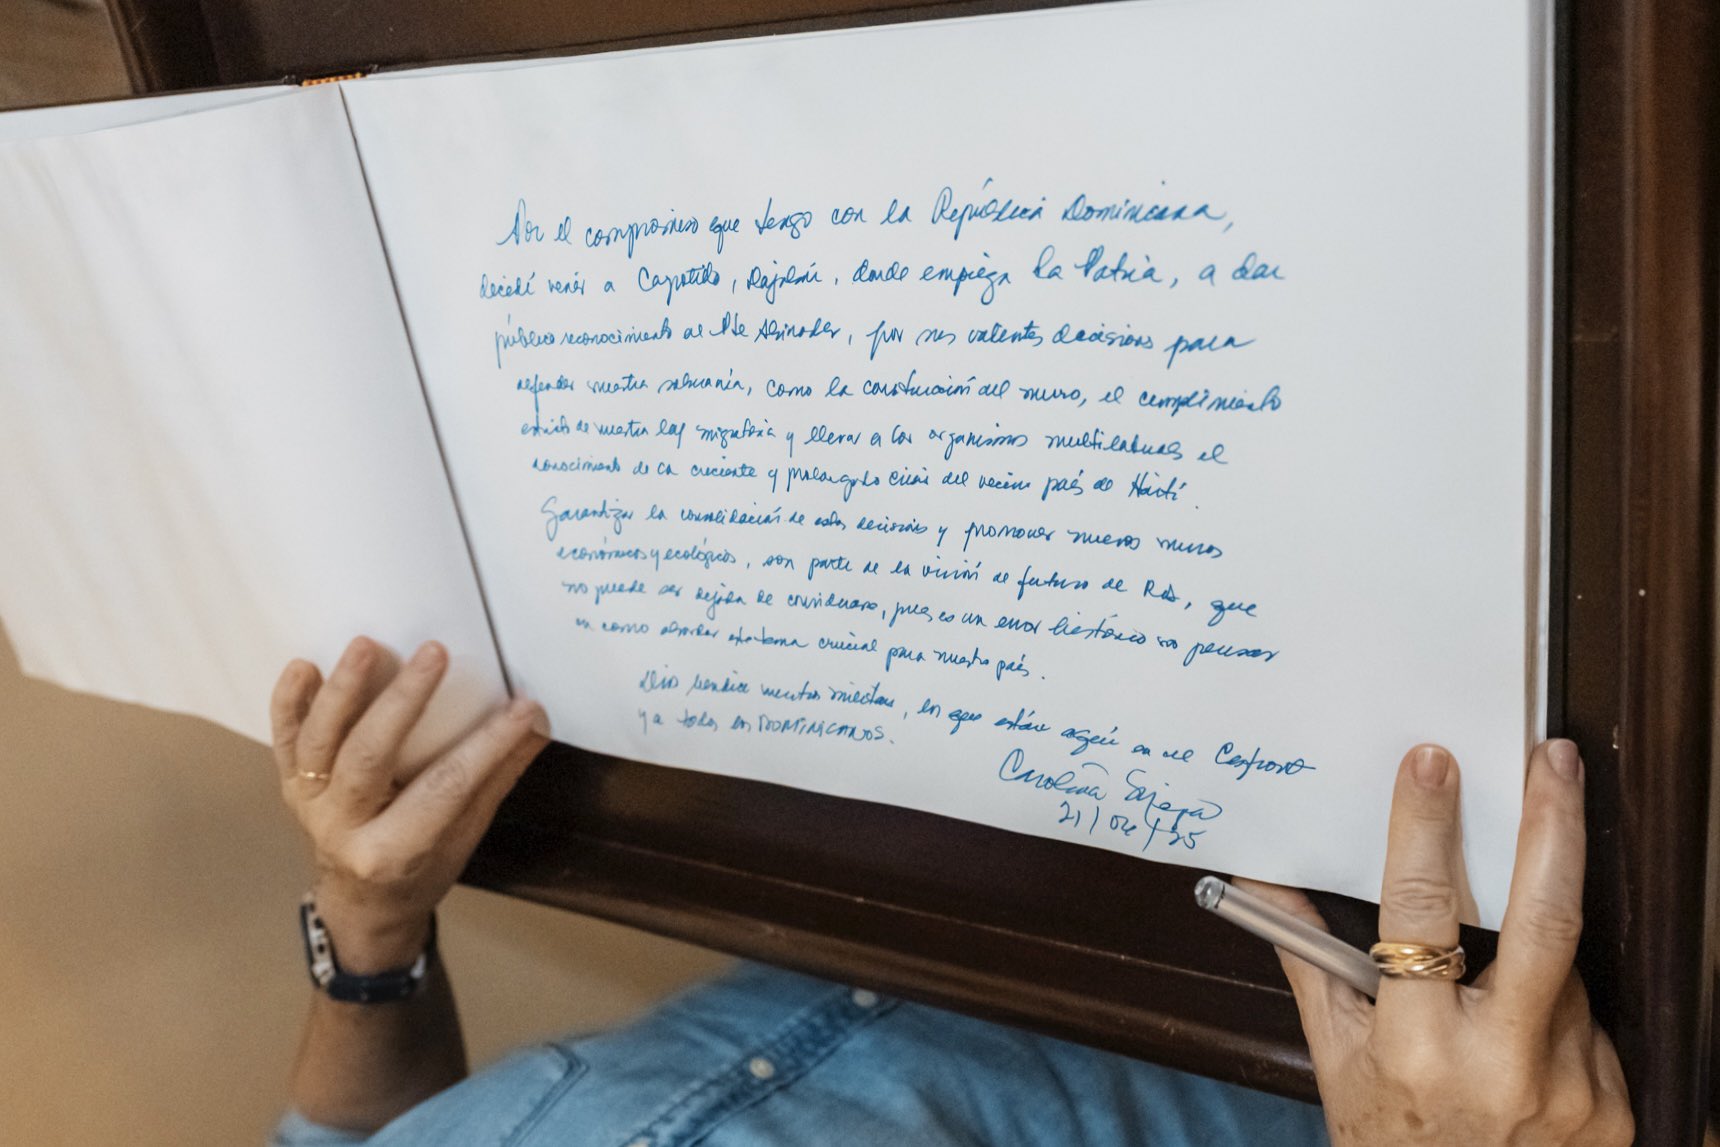 Por el compromiso que tengo con la República Dominicana,
decidí venir a Capotillo, Dajabón, donde empieza la Patria, a dar
público reconocimiento al Pte Abinader, por sus valientes decisiones para
defender nuestra soberanía, como la construcción del muro, el cumplimiento
estricto de nuestra ley migratoria y llevar a los organismos multilaterales el
conocimiento de la creciente y prolongada crisis del vecino país de Haití.
Garantizar la consolidación de estas decisiones y promover nuevos muros
económicos y ecológicos, son parte de la visión de futuro de RD, que
no puede ser dejada de considerarse, pues es un error histórico no pensar
en como abordar este tema crucial para nuestro país.
Dios bendice nuestras, los que están aquí en el
y a todos los DOMINICANOS.
Carolina Mejía
21/04/25